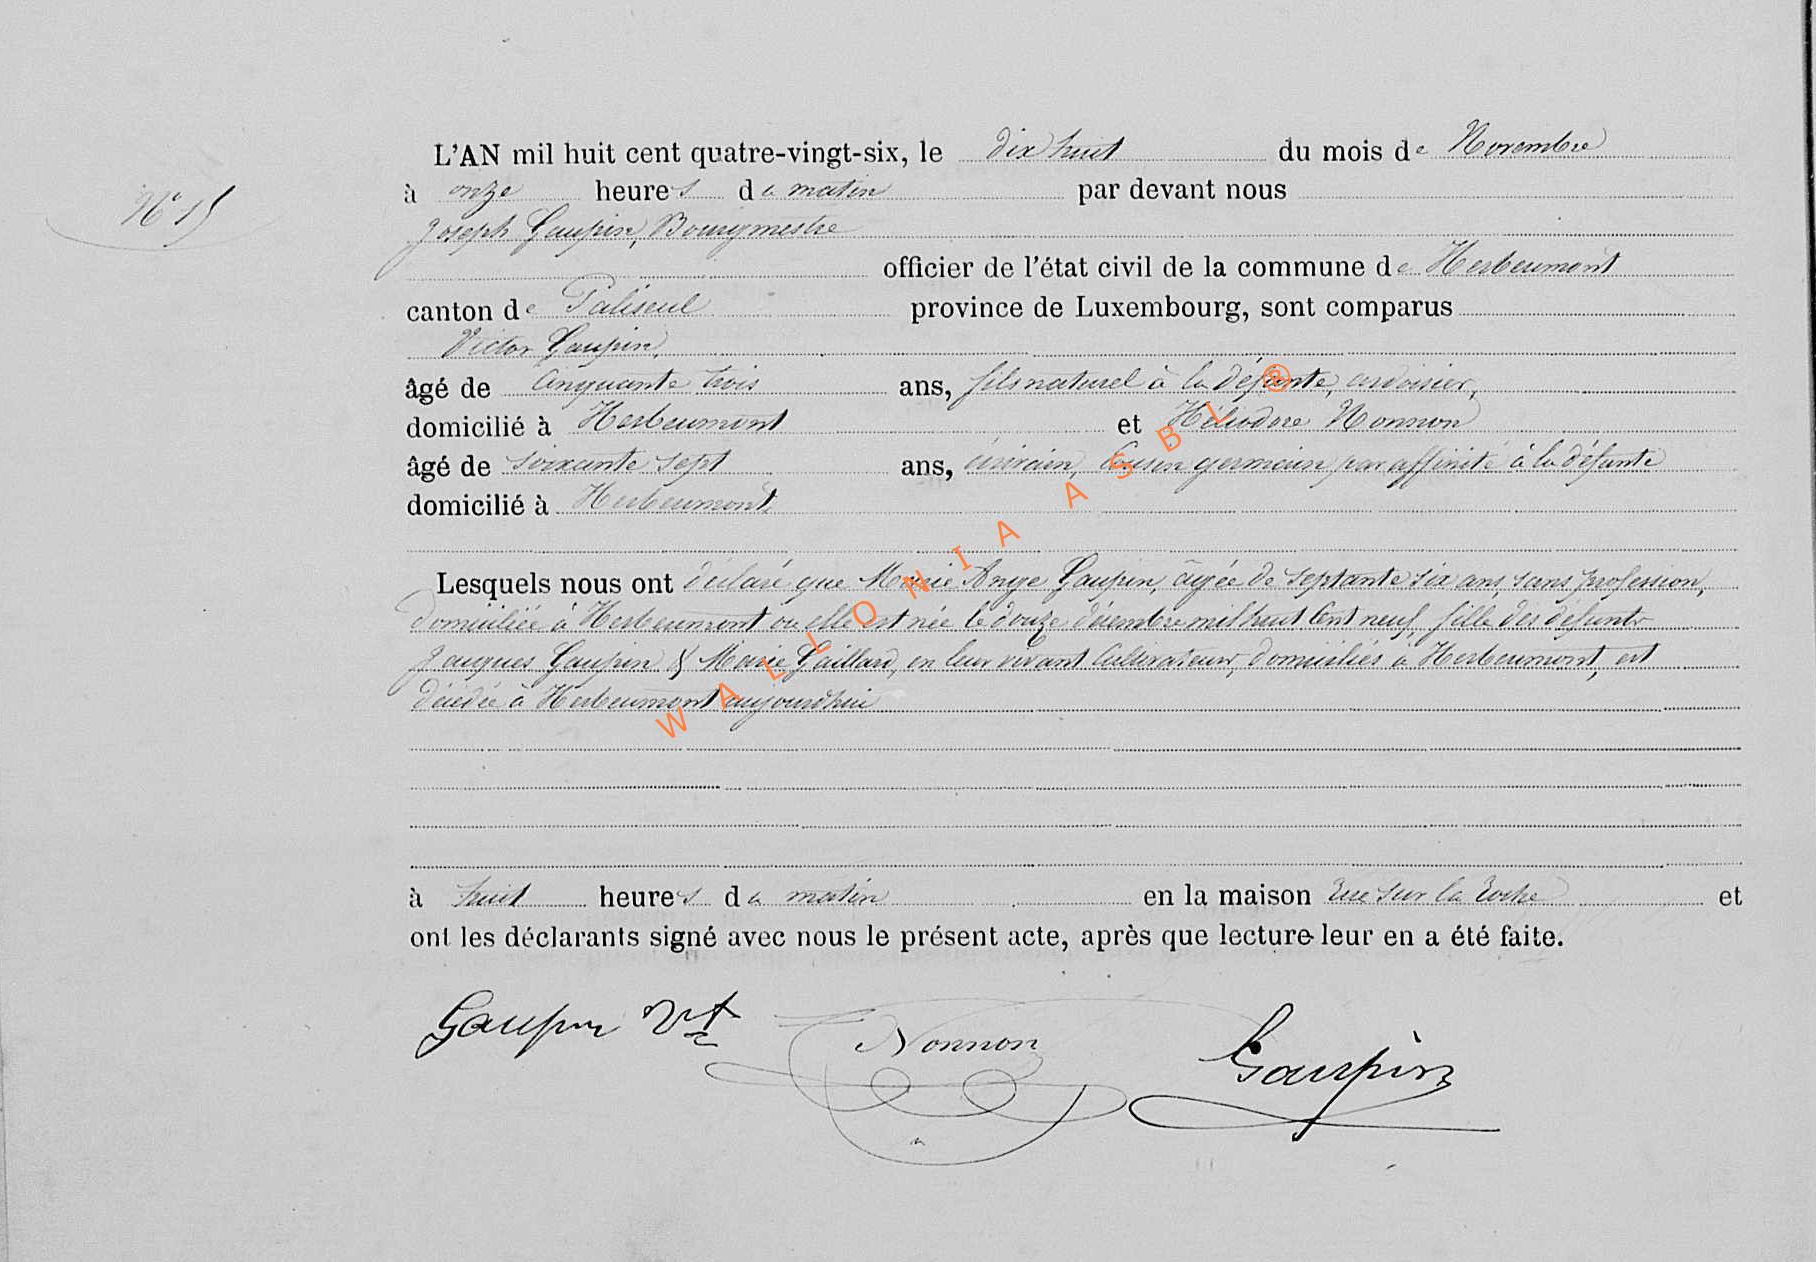 L'AN mil huit cent quatre-vingt-six, le dix huit du mois de Novembre
N° 15
à onze heures du matin par devant nous
Joseph Gaupin, Bourgmestre
officier de l'état civil de la commune de Herbeumont
canton de Paliseul province de Luxembourg, sont comparus
Victor Gaupin,
âgé de cinquante trois ans, fils naturel à la défunte, ardoisier,
domicilié à Herbeumont et Héliodore Nonnon
âgé de soixante sept ans, écrivain, cousin germain par affinité à la défunte
domicilié à Herbeumont,
Lesquels nous ont déclaré que Marie Ange Gaupin, âgée de septante six ans, sans profession,
domiciliée à Herbeumont où elle est née le douze décembre mil huit cent neuf, fille des défunts
Jacques Gaupin & Marie Gaillard, en leur vivant cultivateurs, domiciliés à Herbeumont, est
décédée à Herbeumont aujourd'hui
à huit heures du matin en la maison rue sur la roche et
ont les déclarants signé avec nous le présent acte, après que lecture leur en a été faite.
Gaupin Vt Nonnon Gaupin
WALLONIA ASBL ®